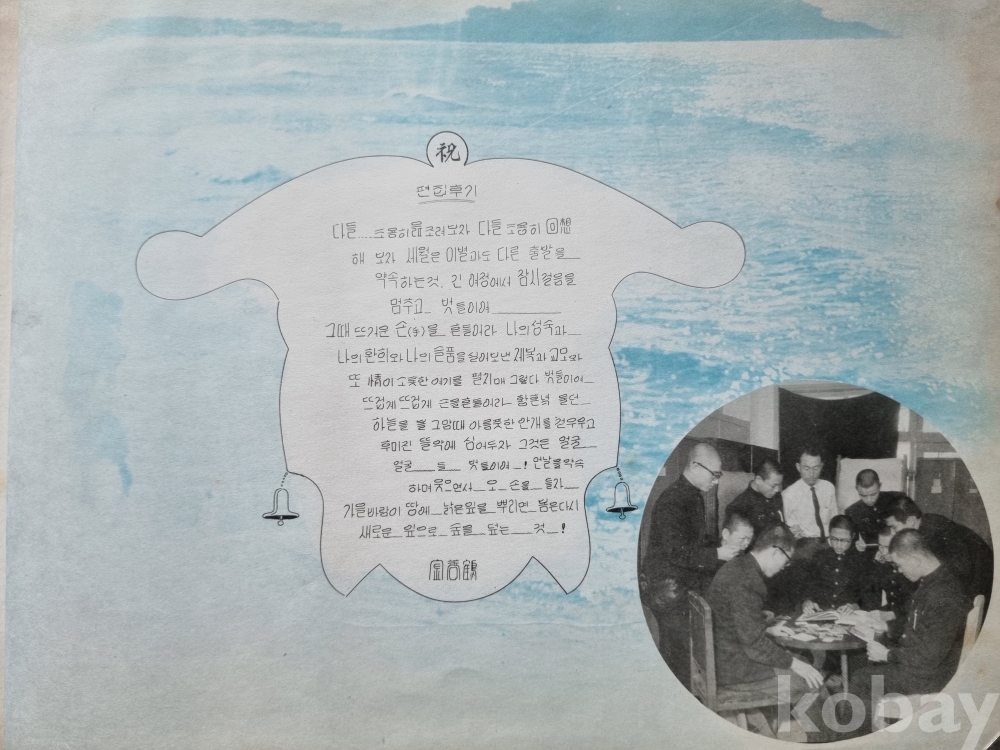 祝
편집후기
다들.... 조용히 눈조려보자 다들 조용히 回想
해 보자 세월은 이별과도 다른 출발을
약속하는것. 긴 여정에서 잠시걸음을
멈추고 벗들이여
그때 뜨거운 손(手)을 흔들어라 나의성숙과
나의 환희와 나의 슬픔을 실어보낸 제복과 교모와
또 情이 소롯한 얘기를 펼치매 그렇다 벗들이여
뜨겁게 뜨겁게 손을흔들어라 황혼녘
하늘을 볼 그맘때 아름풋한 안개를 걷우우고
후미진 뜰악에 심어두자 그것은 얼굴
얼굴 들 벗들이여 ! 만날을약속
하며 웃으면서 오 손을 들라
가을바람이 땅에 낡은잎을 뿌리면 봄은다시
새로운 잎으로 숲을 덮는 것 !
kobay